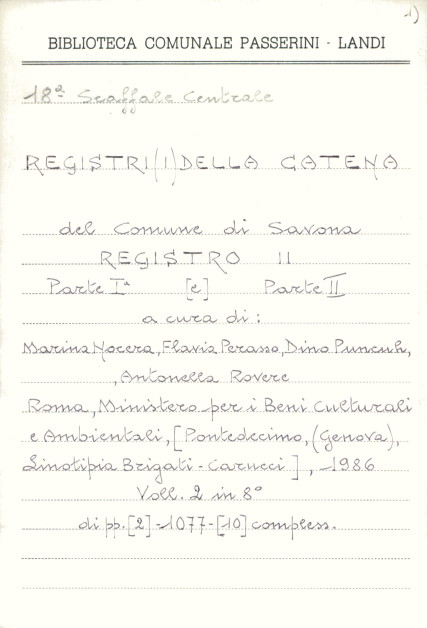 1)
BIBLIOTECA COMUNALE PASSERINI - LANDI
18ª Scaffale Centrale
REGISTRI(I)DELLA CATENA
del Comune di Savona
REGISTRO II
Parte Iª [e] Parte II
a cura di:
Marina Nocera, Flavia Perasso, Dino Puncuh,
, Antonella Rovere
Roma, Ministero per i Beni Culturali
e Ambientali, [Pontedecimo, (Genova),
Linotipia Brigati - Carucci], 1986
Voll. 2 in 8°
di pp. [2]-1077-[10] compless.